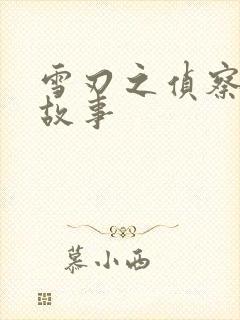 雪刃之偵察
故事
慕小西